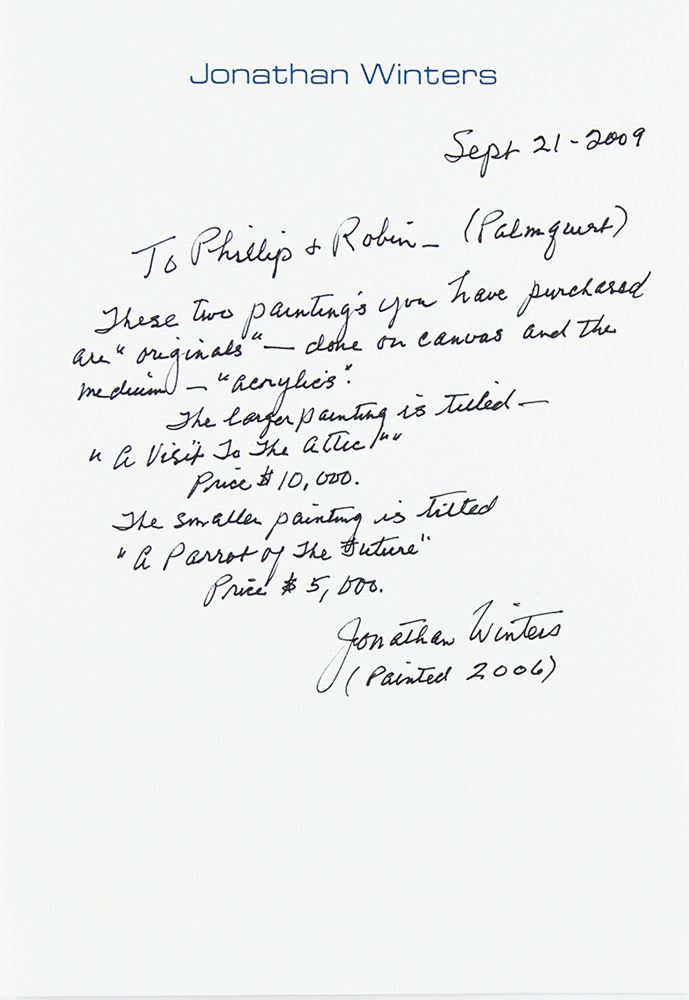 Jonathan Winters
Sept 21-2009
To Phillip & Robin - (Palmquist)
These two painting's you have purchased
are "originals" — done on canvas and the
medium — "acrylics".
The larger painting is titled —
"A Visit To The Attic!""
Price $10,000.
The smaller painting is titled
"A Parrot of The Future"
Price $5,000.
Jonathan Winters
(Painted 2006)